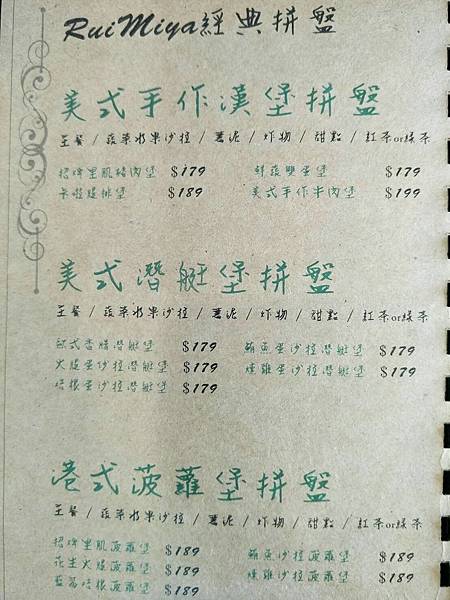 RuiMiya經典拼盤
美式手作漢堡拼盤
主餐 / 蔬菜水果沙拉 / 薯泥 / 炸物 / 甜點 / 紅茶or綠茶
招牌里肌豬肉堡 $179 鮮蔬雙蛋堡 $179
卡啦雞排堡 $189 美式手作牛肉堡 $199
美式潛艇堡拼盤
主餐 / 蔬菜水果沙拉 / 薯泥 / 炸物 / 甜點 / 紅茶or綠茶
歐式香腸潛艇堡 $179 鮪魚蛋沙拉潛艇堡 $179
火腿蛋沙拉潛艇堡 $179 燻雞蛋沙拉潛艇堡 $179
培根蛋沙拉潛艇堡 $179
港式菠蘿堡拼盤
主餐 / 蔬菜水果沙拉 / 薯泥 / 炸物 / 甜點 / 紅茶or綠茶
招牌里肌菠蘿堡 $189 鮪魚沙拉菠蘿堡 $189
花生火腿菠蘿堡 $189 燻雞沙拉菠蘿堡 $189
藍莓培根菠蘿堡 $189